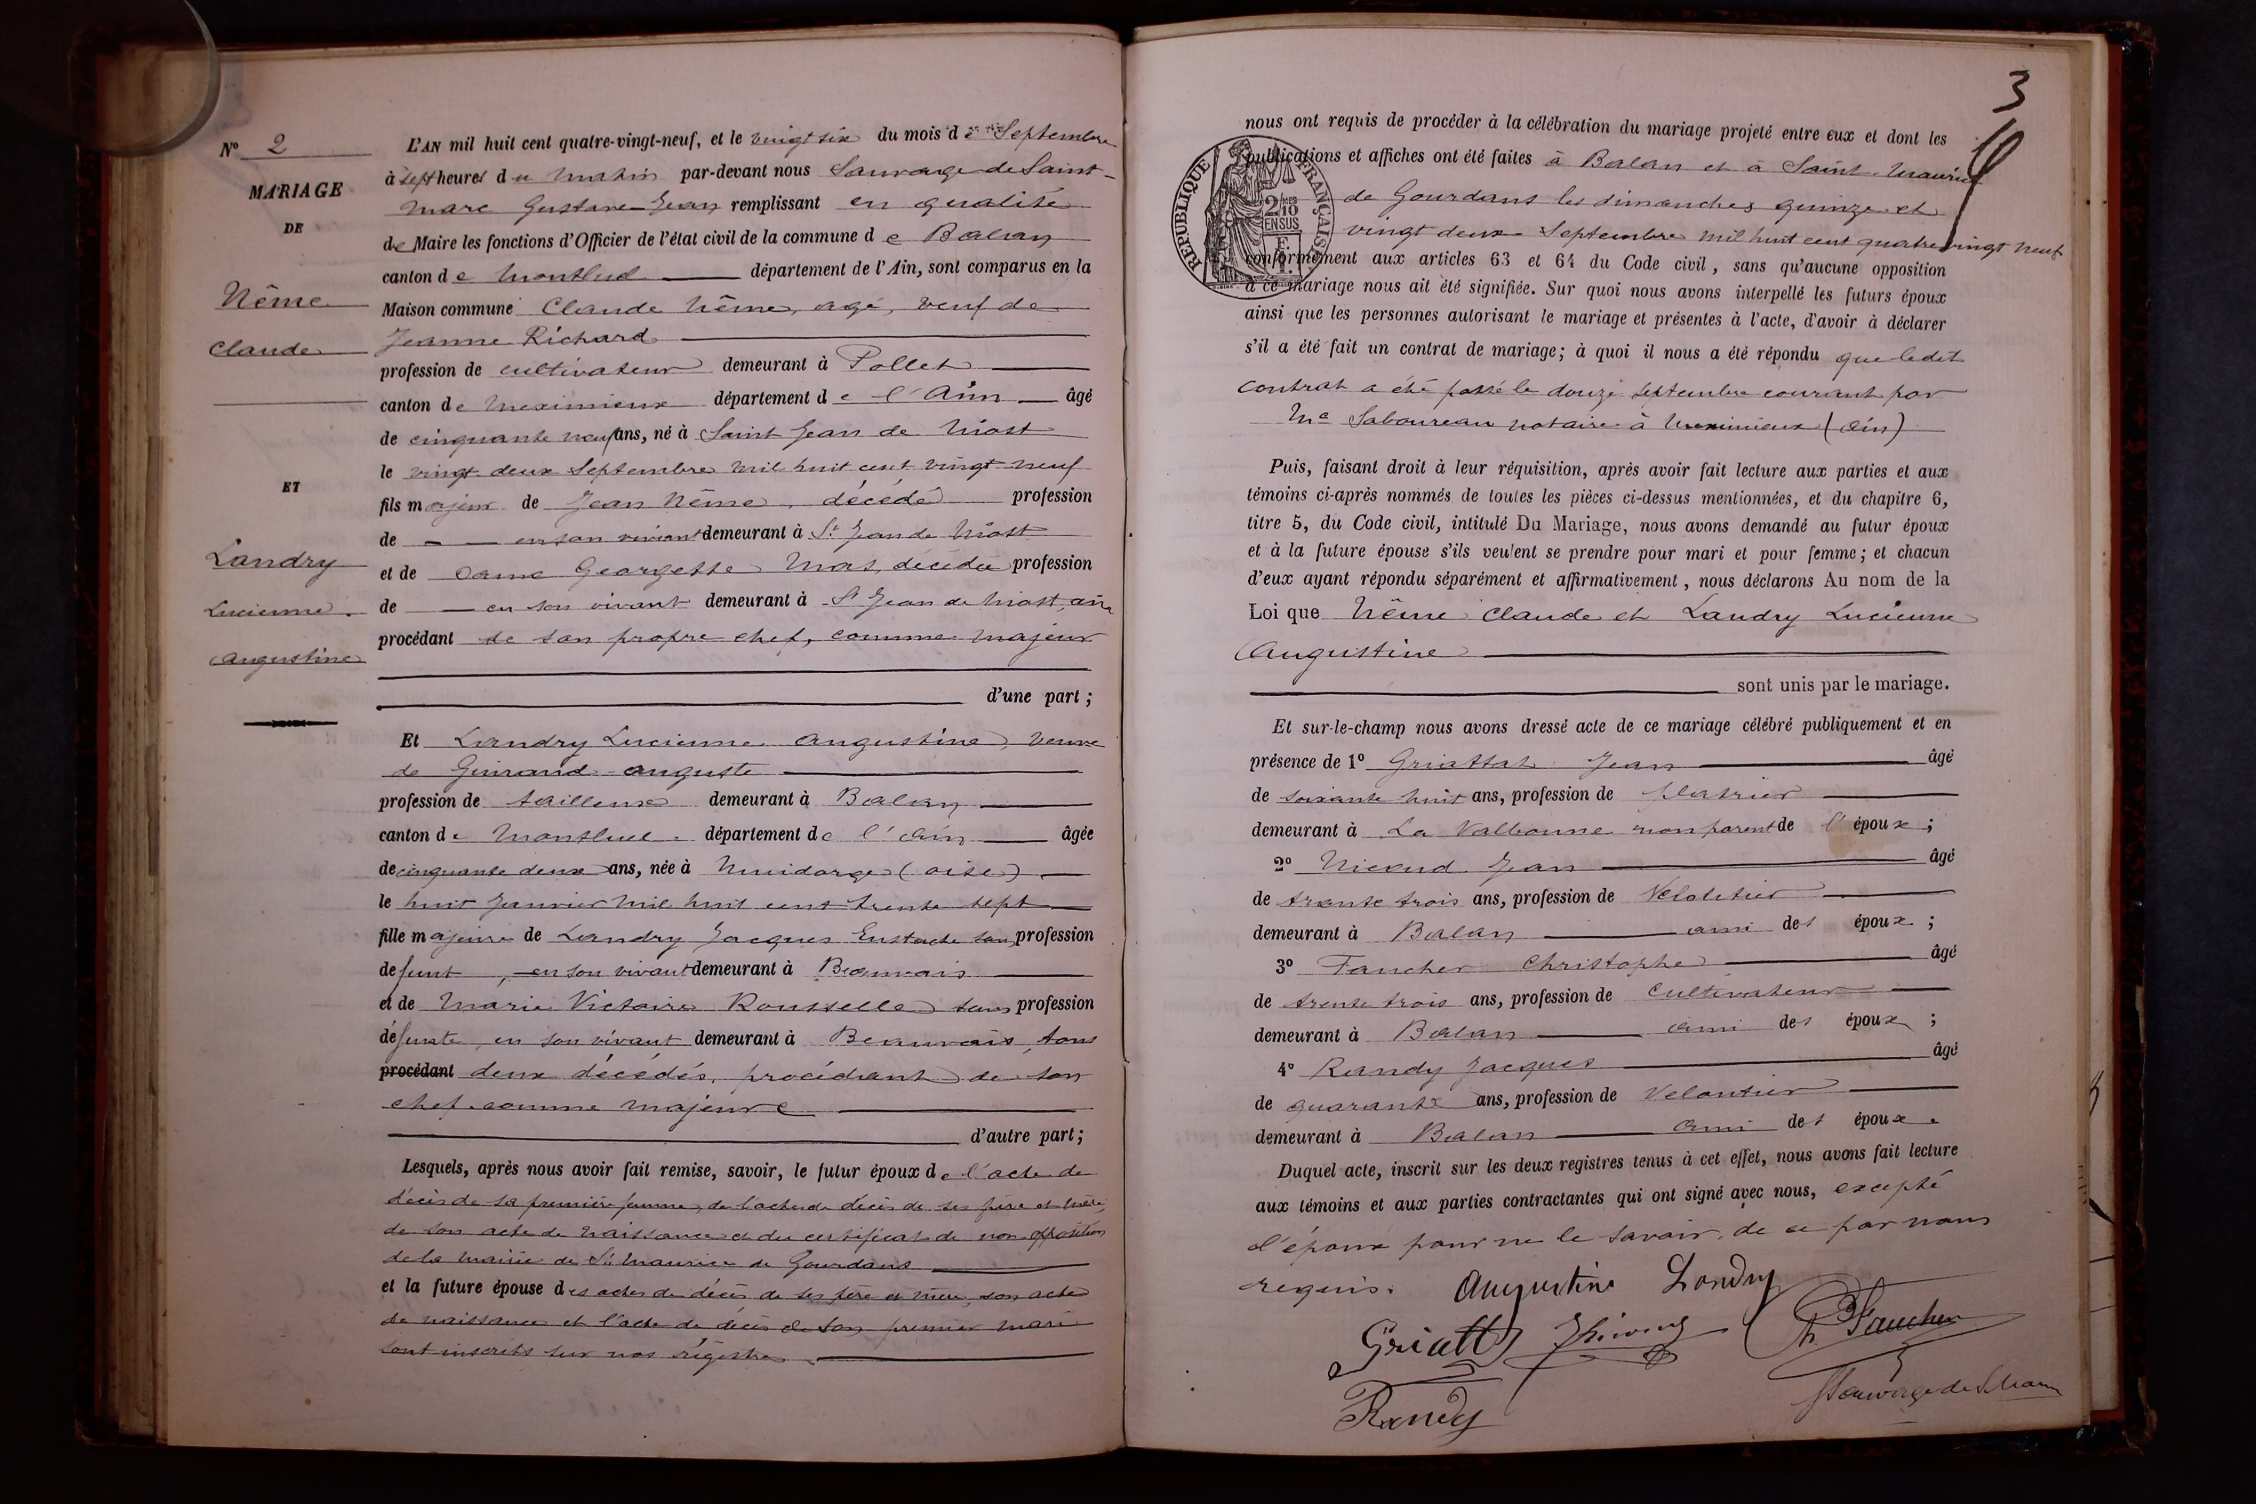 N° 2
MARIAGE
DE
Nême
Claude
ET
Landry
Lucienne
Augustine
L'AN mil huit cent quatre-vingt-neuf, et le vingt six du mois de Septembre
à sept heures du matin par-devant nous Sauvage de Saint-
Marc Gustave Jean remplissant en qualité
de Maire les fonctions d'Officier de l'état civil de la commune de Balan
canton de Montluel département de l'Ain, sont comparus en la
Maison commune Claude Nême, agé, veuf de
Jeanne Richard
profession de cultivateur demeurant à Pollet
canton de Meximieux département de l'Ain âgé
de cinquante neuf ans, né à Saint Jean de Niost
le vingt deux Septembre mil huit cent vingt neuf
fils majeur de Jean Nême, décédé profession
de en son vivant demeurant à St Jean de Niost
et de Dame Georgette Mas, décédée profession
de en son vivant demeurant à St Jean de Niost, ain
procédant de son propre chef, comme majeur
d'une part ;
Et Landry Lucienne Augustine, veuve
de Guirand auguste
profession de tailleuse demeurant à Balan
canton de Montluel département de l'Ain âgée
de cinquante deux ans, née à Muidorge (oise)
le huit Janvier mil huit cent trente sept
fille majeure de Landry Jacques Eustache sans profession
defunt, en son vivant demeurant à Beauvais
et de Marie Victoire Rousselle sans profession
défunte, en son vivant demeurant à Beauvais, tous
procédant deux décédés, procédant de son
chef comme majeure
d'autre part ;
Lesquels, après nous avoir fait remise, savoir, le futur époux de l'acte de
décès de sa première femme, de l'acte de décès de ses père et mère,
de son acte de naissance et du certificat de non opposition
de la mairie de St Maurice de Gourdans
et la future épouse des actes de décès de ses père et mère, son acte
de naissance et l'acte de décès de son premier mari
sont inscrits sur nos régistres
3
nous ont requis de procéder à la célébration du mariage projeté entre eux et dont les
publications et affiches ont été faites à Balan et à Saint Maurice
de Gourdans les dimanches quinze et
vingt deux Septembre mil huit cent quatre vingt neuf
RÉPUBLIQUE FRANÇAISE
2/10 EN SUS
conformément aux articles 63 et 64 du Code civil, sans qu'aucune opposition
à ce mariage nous ait été signifiée. Sur quoi nous avons interpellé les futurs époux
ainsi que les personnes autorisant le mariage et présentes à l'acte, d'avoir à déclarer
s'il a été fait un contrat de mariage; à quoi il nous a été répondu que ledit
contrat a été passé le douze septembre courant par
Me Saboureau notaire à Meximieux (Ain)
Puis, faisant droit à leur réquisition, après avoir fait lecture aux parties et aux
témoins ci-après nommés de toutes les pièces ci-dessus mentionnées, et du chapitre 6,
titre 5, du Code civil, intitulé Du Mariage, nous avons demandé au futur époux
et à la future épouse s'ils veulent se prendre pour mari et pour femme ; et chacun
d'eux ayant répondu séparément et affirmativement, nous déclarons Au nom de la
Loi que Nême Claude et Landry Lucienne
Augustine
sont unis par le mariage.
Et sur-le-champ nous avons dressé acte de ce mariage célébré publiquement et en
présence de 1° Griattat Jean âgé
de soixante huit ans, profession de platrier
demeurant à La Valbonne non parent de l'époux ;
2° Jean âgé
de trente trois ans, profession de
demeurant à Balan ami des époux ;
3° Faucher Christophe âgé
de trente trois ans, profession de cultivateur
demeurant à Balan ami des époux ;
4° Randy Jacques âgé
de quarante ans, profession de
demeurant à Balan ami des époux.
Duquel acte, inscrit sur les deux registres tenus à cet effet, nous avons fait lecture
aux témoins et aux parties contractantes qui ont signé avec nous, excepté
l'époux pour ne le savoir, de ce par nous
requis. Augustine Landry
Griatt Faucher
Randy Sauvage de St Marc